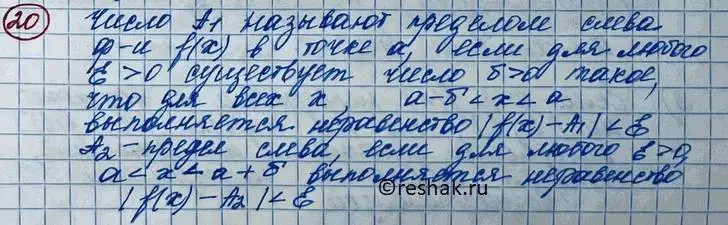 20 Число A₁ называют пределом слева
ф-и f(x) в точке a, если для любого
Ɛ > 0 существует число б>0 такое,
что для всех x, a-б < x < a
выполняется неравенство |f(x) - A₁| < Ɛ
A₂ - предел слева, если для любого Ɛ > 0,
a < x < a + б выполняется неравенство
|f(x) - A₂| < Ɛ
©reshak.ru